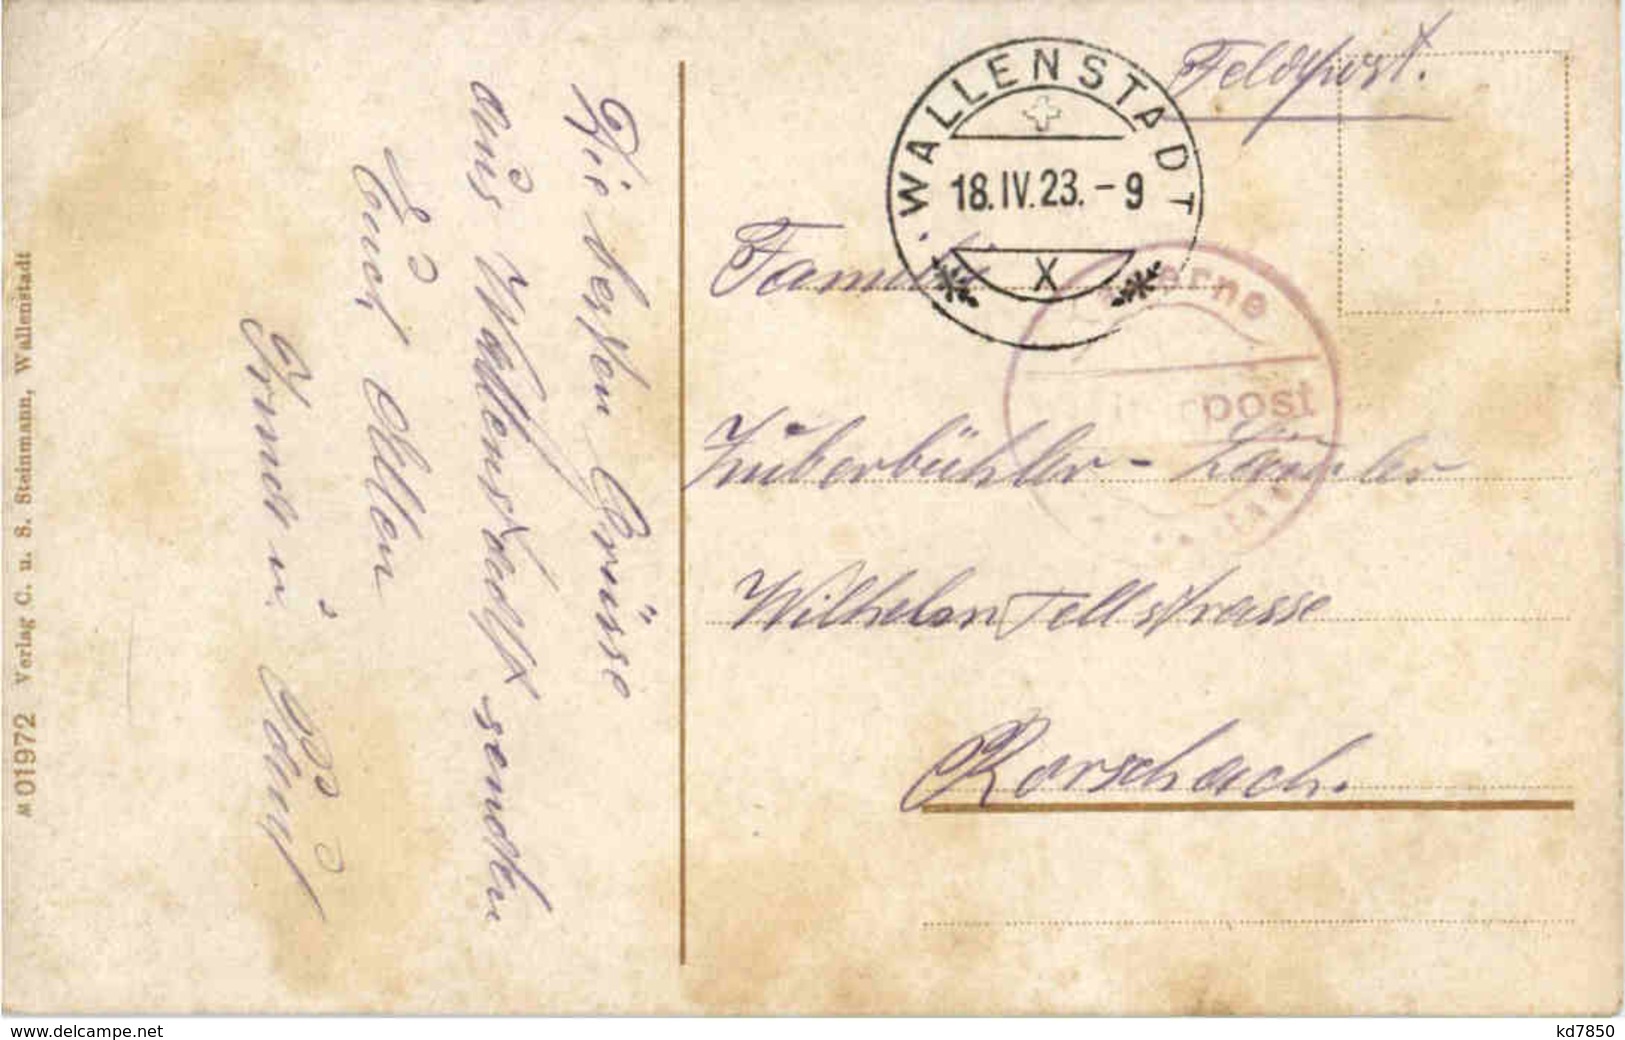 Die besten Grüsse
aus Wallenstadt senden
Euch Allen
Ernst u.
M 01972 Verlag C. u. S. Steinmann, Wallenstadt
Feldpost.
WALLENSTADT
18.IV.23.-9
X
post
Familie
Zuberbühler-
Wilhelm Tellstrasse
Rorschach.
www.delcampe.net
kd7850